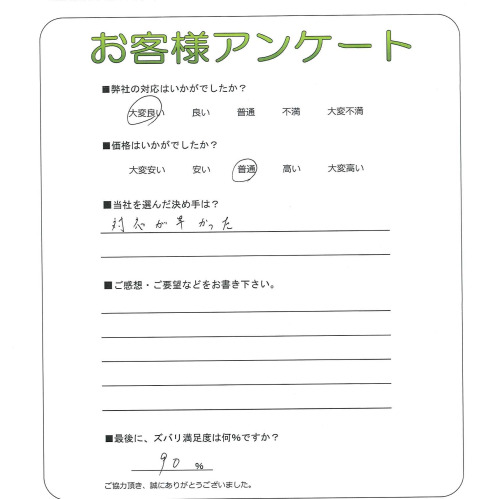 お客様アンケート
■弊社の対応はいかがでしたか？
大変良い 良い 普通 不満 大変不満
■価格はいかがでしたか？
大変安い 安い 普通 高い 大変高い
■当社を選んだ決め手は？
対応が早かった
■ご感想・ご要望などをお書き下さい。
■最後に、ズバリ満足度は何%ですか？
90 %
ご協力頂き、誠にありがとうございました。